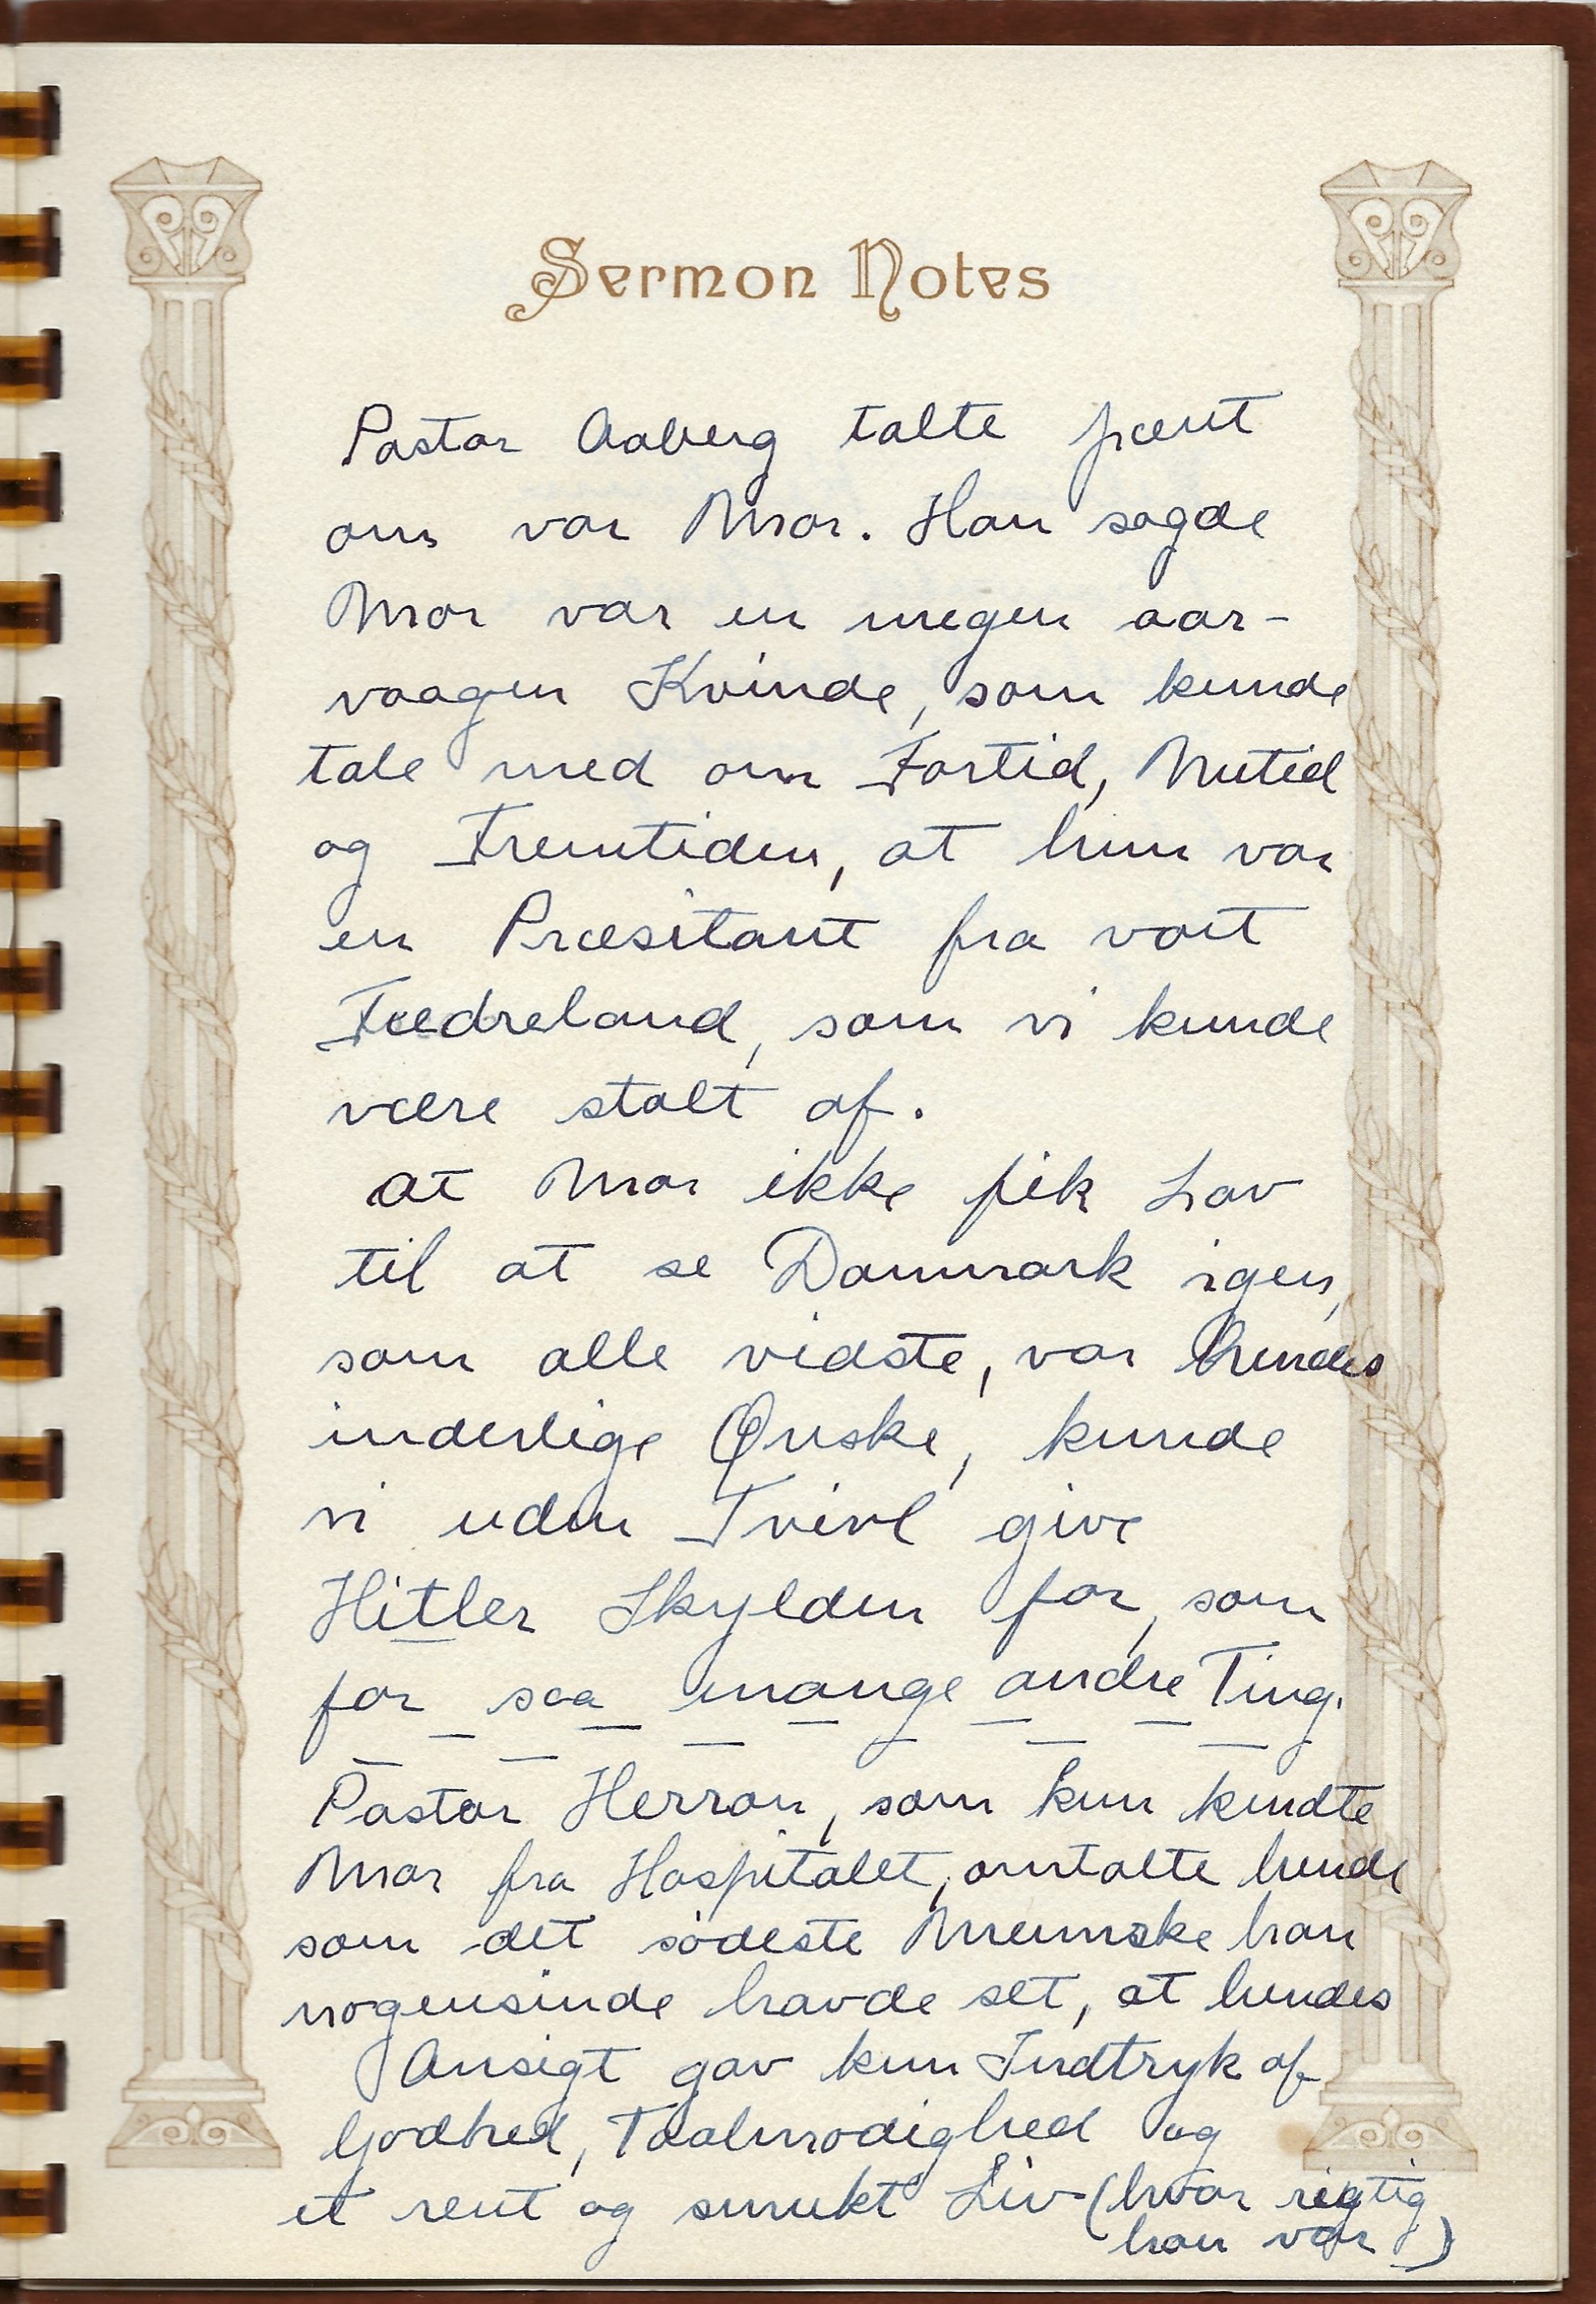 Sermon Notes
Pastor Aaberg talte pænt
om vor Mor. Han sagde
Mor var en megen aar-
vaagen Kvinde, som kunde
tale med om Fortid, Nutid
og Fremtiden, at hun var
en Præsitant fra vort
Fædreland, som vi kunde
være stolt af.
At Mor ikke fik Lov
til at se Danmark igen,
som alle vidste, var hendes
inderlige Ønske, kunde
vi uden Tvivl give
Hitler Skylden for, som
for saa mange andre Ting.
Pastor Herron, som kun kendte
Mor fra Hospitalet, omtalte hende
som det sødeste Menneske han
nogensinde havde set, at hendes
Ansigt gav kun Indtryk af
Godhed, Taalmodighed og
et rent og smukt Liv (hvor rigtig
han var)